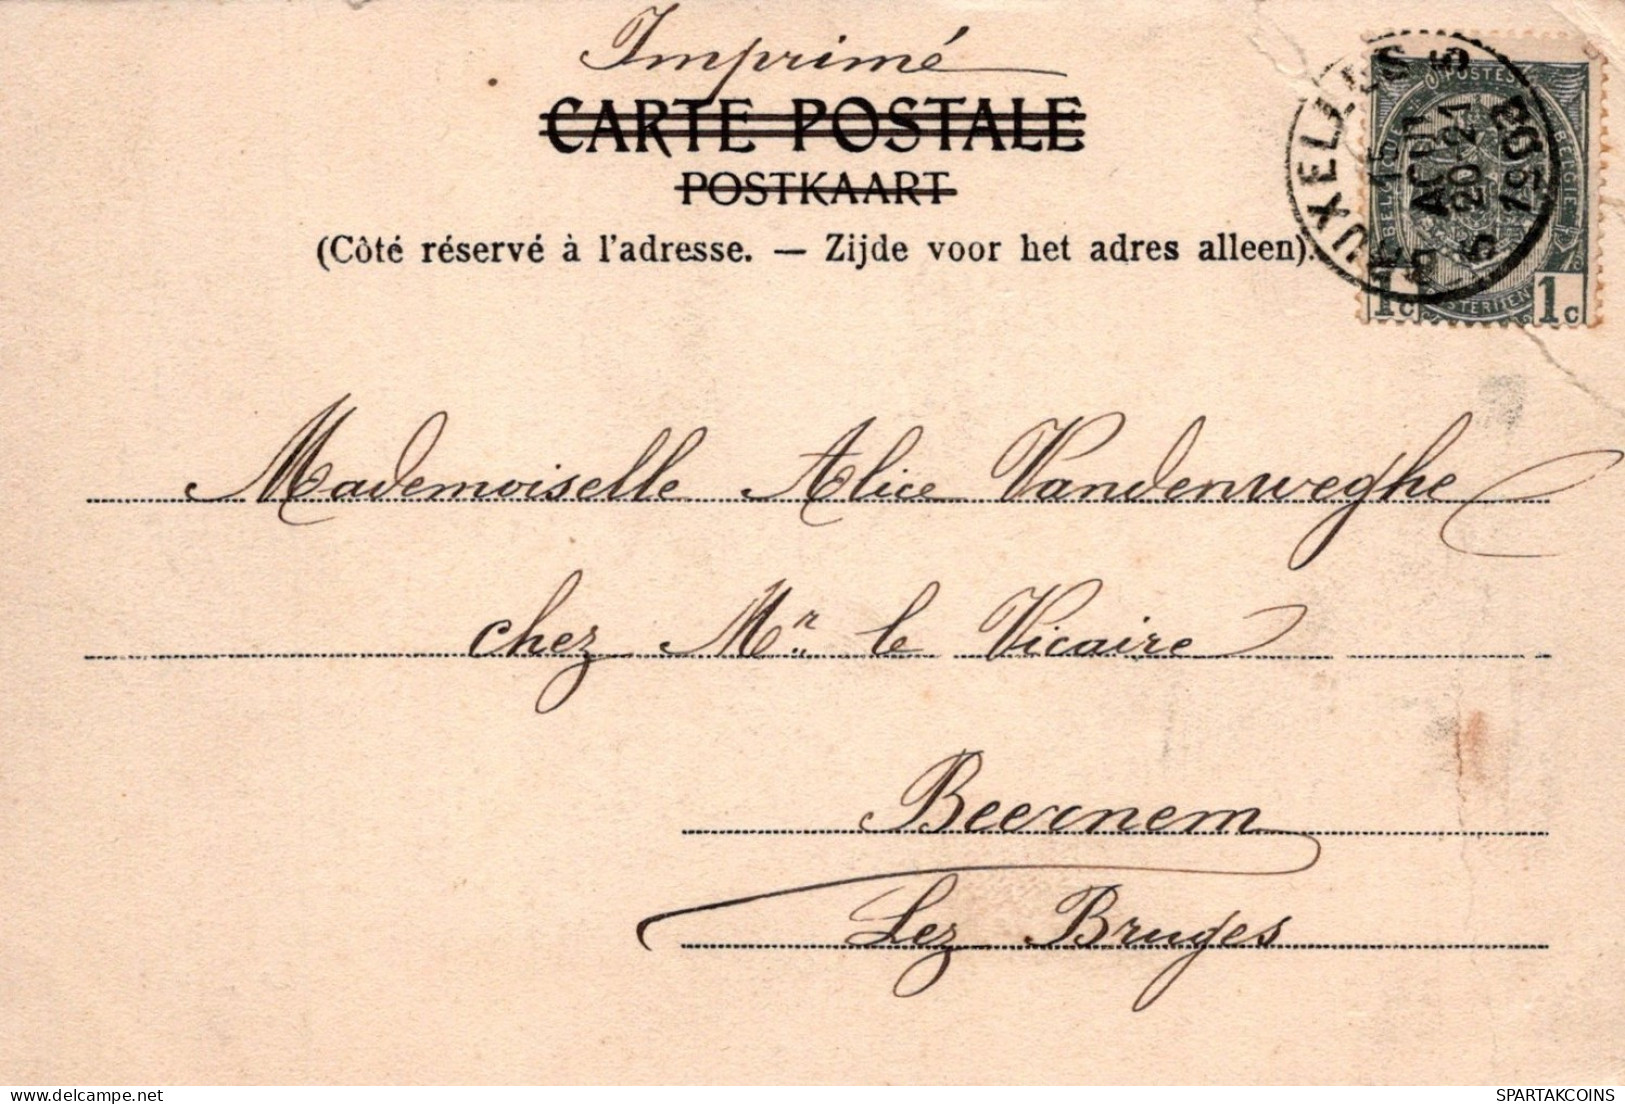 Imprimé
CARTE POSTALE
POSTKAART
(Côté réservé à l'adresse. — Zijde voor het adres alleen).
BRUXELLES 5
15
AOUT
20-21
5
POSTES
BELGIE
1c 1c
Mademoiselle Alice Vandenweghe
chez Mr. le Vicaire
Beernem
Lez Bruges
www.delcampe.net
SPARTAKCOINS